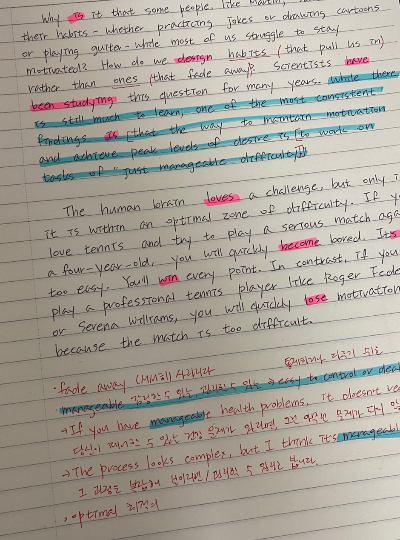 Why is it that some people, like Martin,
their habits - whether practicing jokes or drawing cartoons
or playing guiter - while most of us struggle to stay
motivated? How do we design habits (that pull us in)
rather than ones (that fade away)? Scientists have
been studying this question for many years. While there
is still much to learn, one of the most consistent
findings is (that the way to maintain motivation
and achieve peak levels of desire is (to work on
tasks of "just manageable difficulty"))
The human brain loves a challenge, but only i
it is within an optimal zone of difficulty. If y
love tennis and try to play a serious match aga
a four-year-old, you will quickly become bored. Its
too easy. You'll win every point. In contrast, if you
play a professional tennis player like Roger Fede
or Serena Williams, you will quickly lose motivation
because the match is too difficult.
· fade away (서서히) 사라지다
manageable 감당할 수 있는 관리할 수 있는 → easy to control or deal
→ If you have manageable health problems, it doesn't re
당신이 제어할 수 있는 건강 문제가 있다면, 그건
→ The process looks complex, but I think its manageabl
그 과정은 복잡해
· optimal 최적의